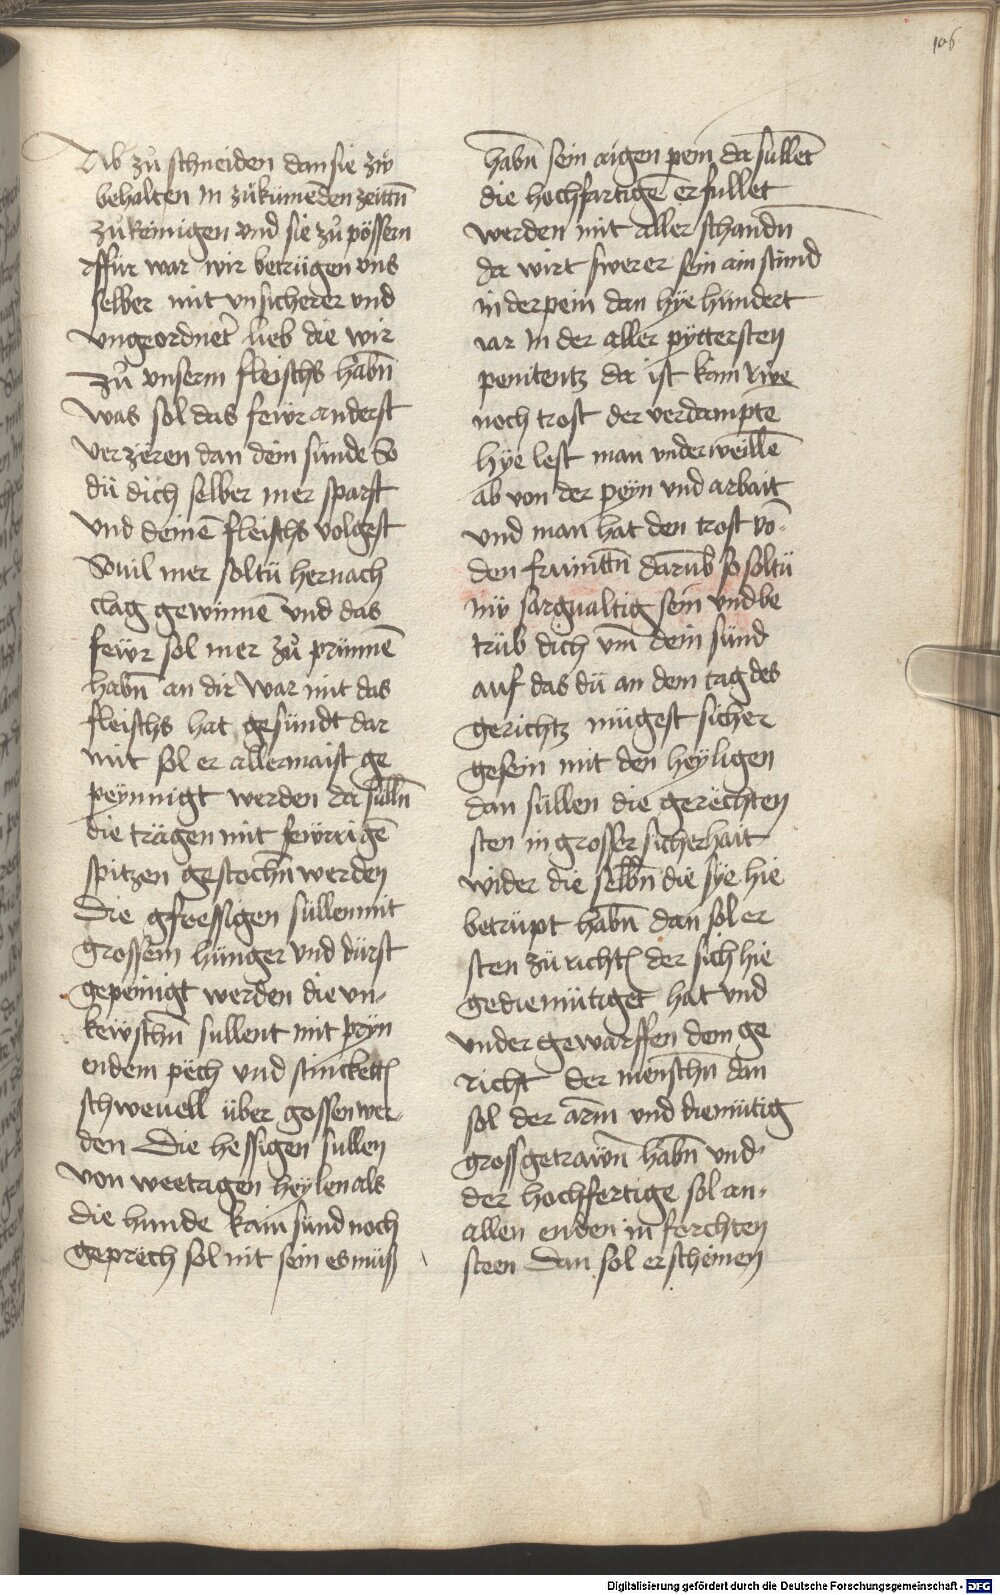 106
Ab zů schneiden dan sie zw̋
behalten in zůkumēden zeittn̄
zů reinigen vnd sie zů pössern
ffür war wir betrügen vns
selber mit vnsicherer vnd
vngeordnet̄ lieb die wir
zů vnserm fleischs habn̄
was sol das fewr anderst
verzeren dan dein sünde So
dü dich selber mer sparst
vnd deinē fleischs volgst
Souil mer soltü hernach
clag gewinnē vnd das
fewr sol mer zů prinnē
habn̄ an dir war mit das
fleischs hat gesündt dar
mit sol er allermaist ge
peynnigt werden da sülln̄
die trägen mit fewrrigē
spitzen gestochn̄ werden
Die gfressigen süllen mit
grossem hünger vnd dürst
gepeinigt werden die vn-
kewschn̄ sullent mit prÿn
endem pëch vnd stinckett̄
schweuell über gossen wer-
den Die hessigen sullen
von weetagen heylen als
die hunde kain sünd noch
geprëch sol nit sein es müß
habn̄ sein aigen pein da süllet̄
die hochfartigē erfullet
werden mit aller schandn̄
da wirt swerer sein ain stünd
in der pein dan hÿe hündert
iar in der aller pyttersten
penitentz da ist kain rẅe
noch trost der verdamptē
hÿe lest man vnderweillē
ab von der peyn vnd arbait
vnd man hat den trost vō
den frainttn̄ darūb so soltü
nü sargualtig sein vnd be
trüb dich vm̄ dein sünd
auf das dü an dem tag des
gerichtz mügest sicher
gesein mit den heyligen
dan süllen die gerëchten
sten in grosser sicherhait
wider die selbn̄ die sÿe hie
betrüpt habn̄ dan sol er
sten zü richtn̄ der sich hie
gediemütiget hat vnd
vnder gewarffen dem ge
richt der menschn̄ dan
sol der arm̄ vnd diemütig
gross getrawn̄ habn̄ vnd
der hochfertige sol an-
allen enden in forchten
steen Dan sol erscheinen
Digitalisierung gefördert durch die Deutsche Forschungsgemeinschaft - DFG